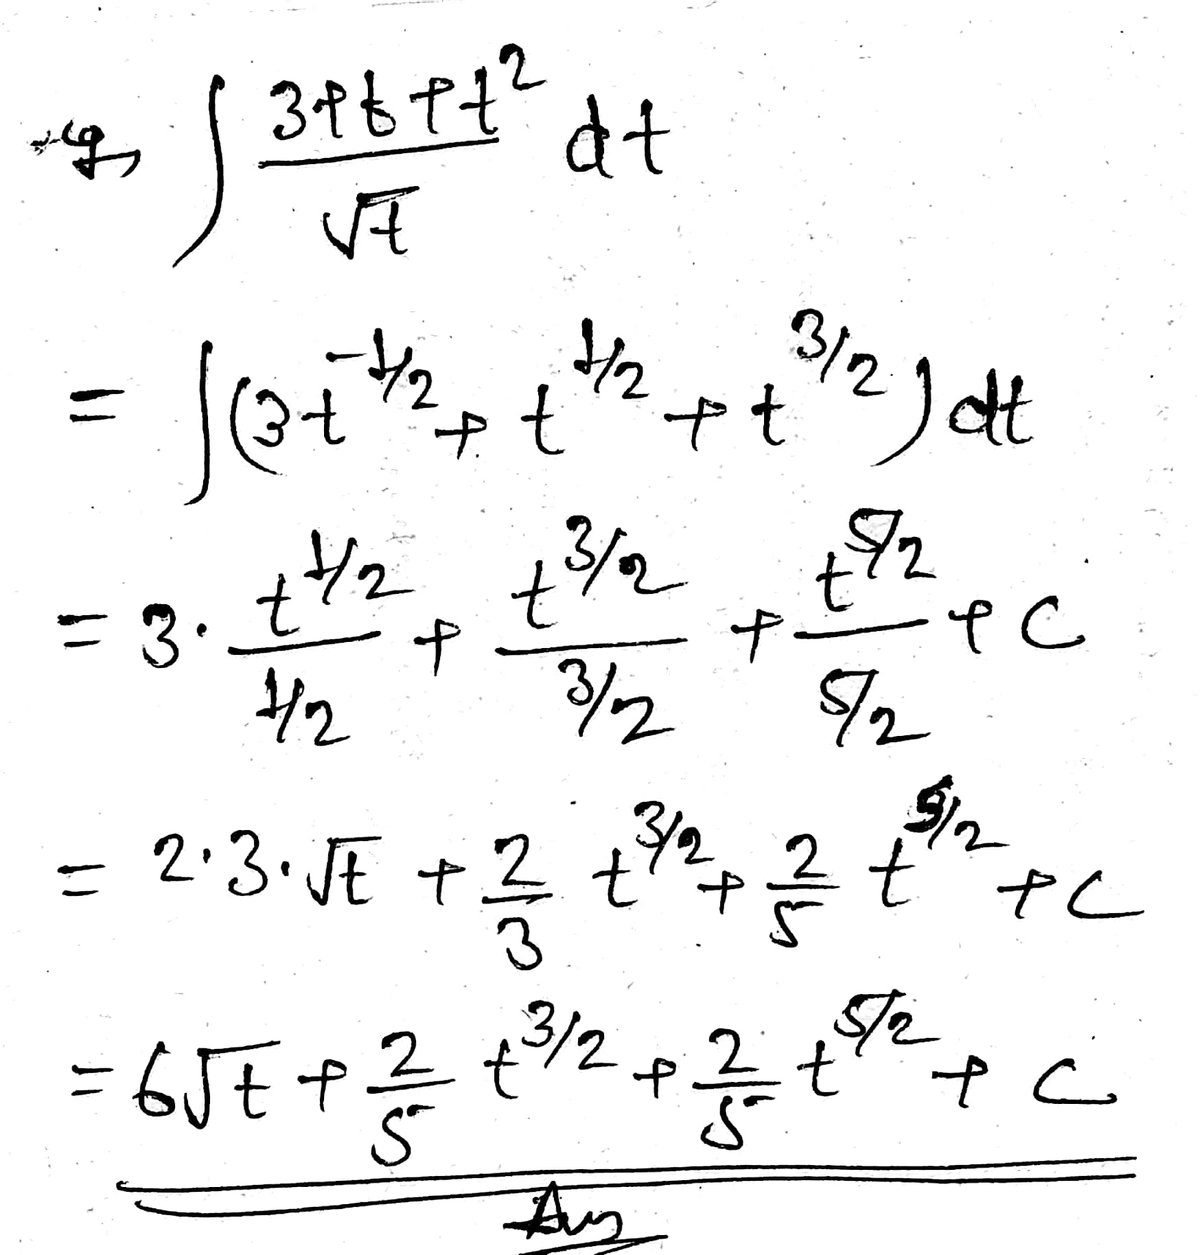 eg, ∫ (3+t+t²)/√t dt
= ∫(3t^(-1/2) + t^(1/2) + t^(3/2)) dt
= 3· t^(1/2)/(1/2) + t^(3/2)/(3/2) + t^(5/2)/(5/2) + C
= 2·3·√t + 2/3 t^(3/2) + 2/5 t^(5/2) + C
= 6√t + 2/5 t^(3/2) + 2/5 t^(5/2) + C
Ans